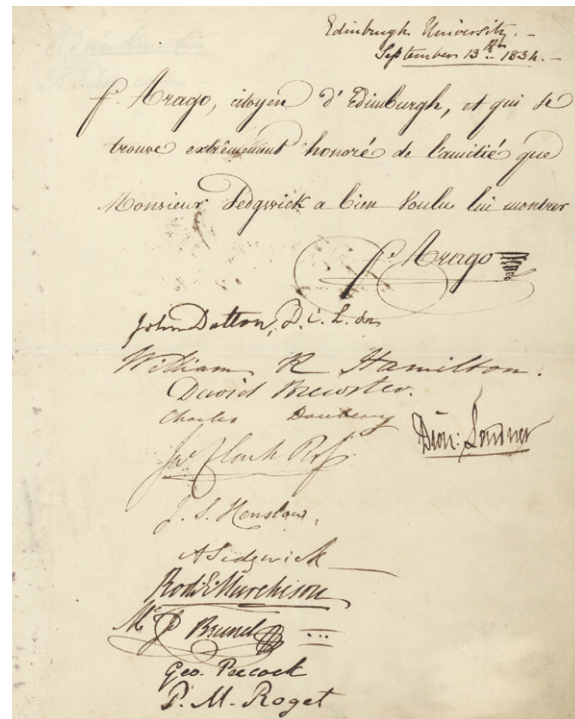 Edinburgh University. –
September 13th 1834. –
f. Arago, citoyen d'Edinburgh, et qui se
trouve extrêmement honoré de l'amitié que
Monsieur Sedgwick a bien voulu lui montrer
f. Arago
John Dalton, D.C.L. &c
William R Hamilton.
David Brewster.
Charles Daubeny
Dion: Lardner
Jas. Clark Prof.
J. S. Henslow,
A Sedgwick
Rod. I. Murchison
Brunel
Geo. Peacock
P. M. Roget